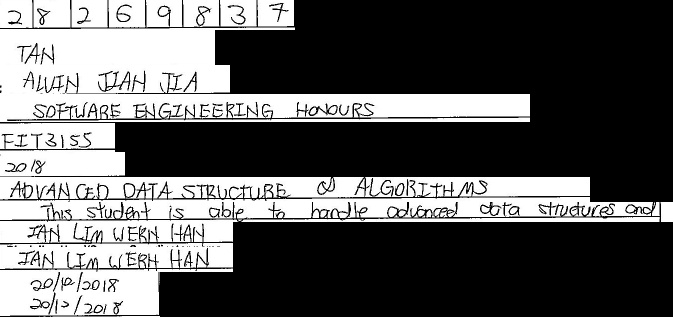 28269837
TAN
ALVIN JIAN JIA
SOFTWARE ENGINEERING HONOURS
FIT3155
2018
ADVANCED DATA STRUCTURE & ALGORITHMS
This student is able to handle advanced data structures and
IAN LIM WERN HAN
IAN LIM WERN HAN
20/12/2018
20/12/2018